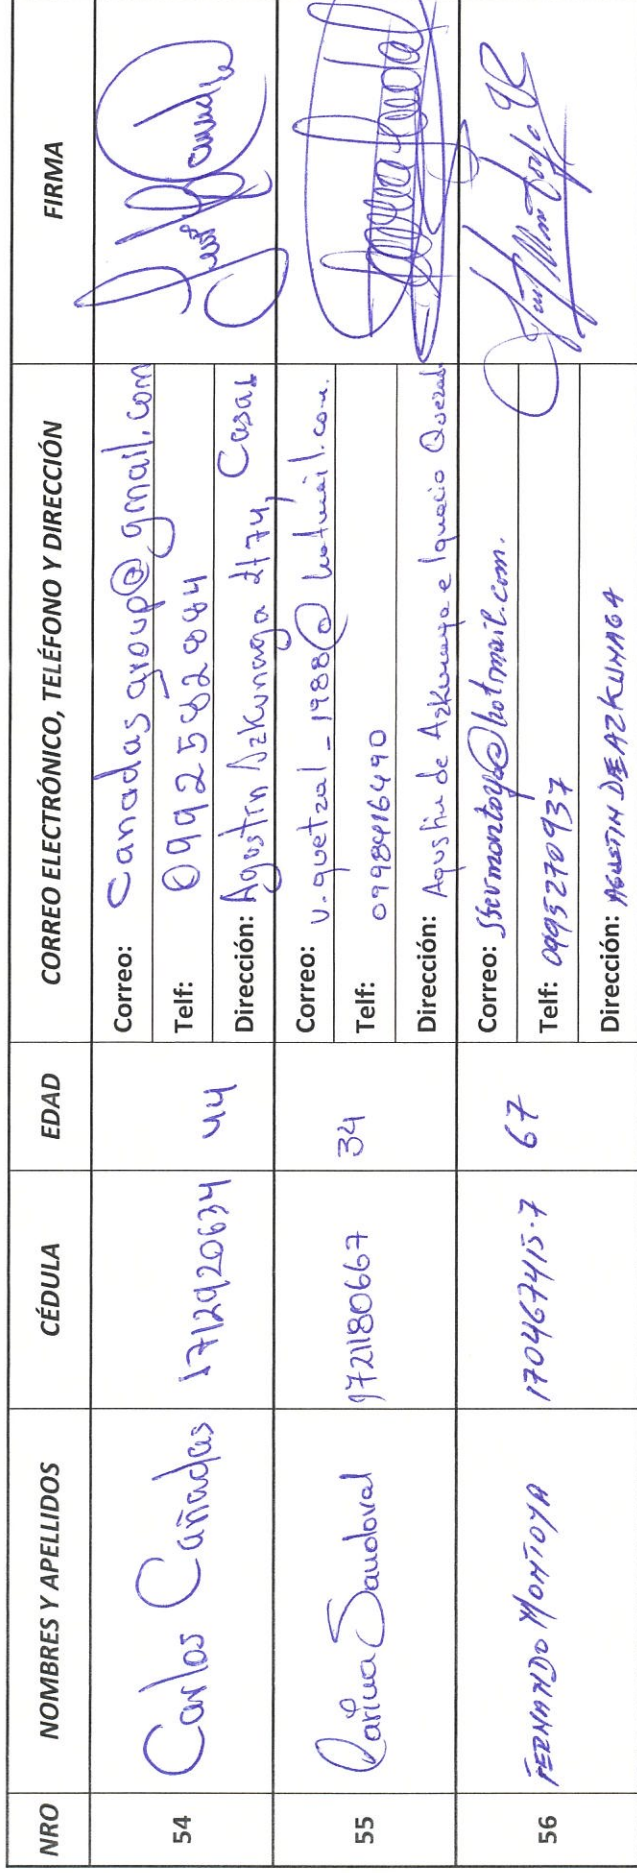 NRO NOMBRES Y APELLIDOS CÉDULA EDAD CORREO ELECTRÓNICO, TELÉFONO Y DIRECCIÓN FIRMA
54 Carlos Cañadas 1712920634 44
Correo: Canadas group@gmail.com
Telf: 0992582884
Dirección: Agustin Azkunaga
55 Karina Sandoval 1721180667 34
Correo: v.quetzal_1988@hotmail.com.
Telf: 0998416490
Dirección: Agustin de Azkunaga e Ignacio Quezada
56 FERNANDO MONTOYA 170467415-7 67
Correo: @hotmail.com.
Telf: 0995270937
Dirección: AGUSTIN DE AZKUNAGA